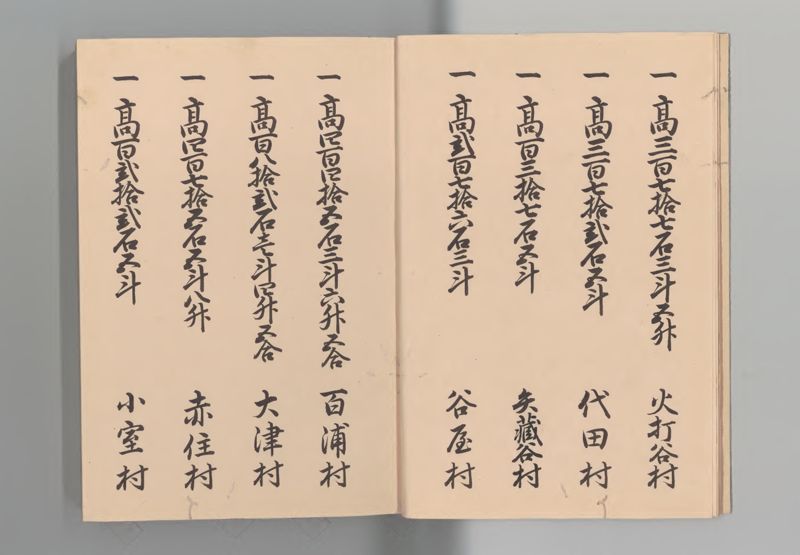 一 高三百七拾七石三斗五升 火打谷村
一 高三百七拾弐石五斗 代田村
一 高百三拾七石五斗 矢蔵谷村
一 高弐百七拾六石三斗 谷屋村
一 高四百四拾五石三斗六升五合 百浦村
一 高百八拾弐石壱斗四升五合 大津村
一 高四百七拾五石五斗八升 赤住村
一 高百弐拾弐石五斗 小室村